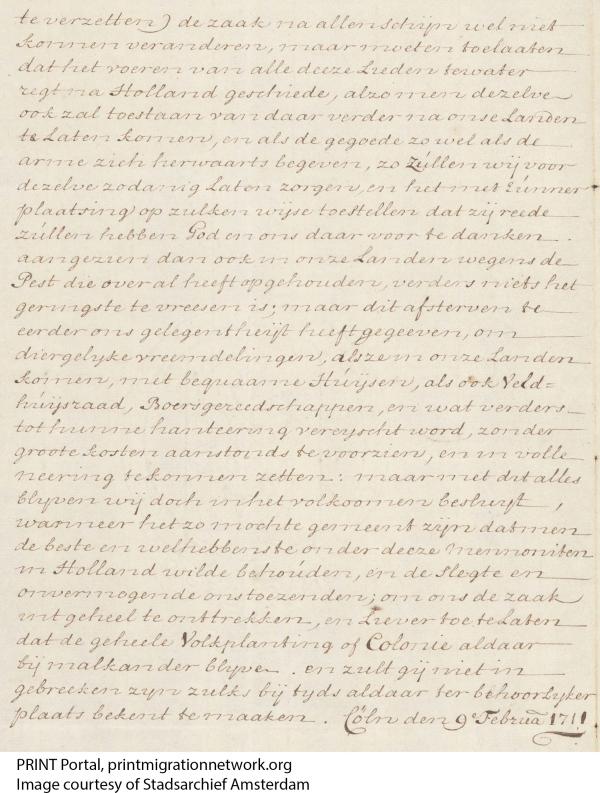 te verzetten) de zaak na allen schijn wel niet
konnen veranderen, maar moeten toelaaten
dat het voeren van alle deeze Lieden te water
regt na Holland geschiede, alzo men dezelve
ook zal toestaan van daar verder na onse Landen
te Laten komen, en als de gegoede zo wel als de
arme zich herwaarts begeven, zo zúllen wij voor
dezelve zodanig Laten zorgen, en het met húnner
plaatsing op zulken wijse toestellen dat zij reede
zúllen hebben God en ons daar voor te danken.
aangezien dan ook in onze Landen wegens de
Pest die over al heeft opgehouden, verders niets het
geringste te vreesen is; maar dit afsterven te
eerder ons gelegentheijt heeft gegeeven, om
diergelyke vreemdelingen, als ze in onze Landen
komen, met bequaame Húijsen, als ook Veld=
húijszaad, Boersgereedschappen, en wat verders
tot hunne hanteering vereyscht word, zonder
groote kosten aanstonds te voorzien, en in volle
neering te konnen zetten: maar met dit alles
blyven wij doch in het volkoomen besluyt,
wanneer het zo mochte gemeent zijn dat men
de beste en welhebbenste onder deeze Mennoniten
in Holland wilde behoúden, en de slegte en
onvermogende ons toezenden; om ons de zaak
int geheel te onttrekken, en Liever toe te Laten
dat de geheele Volkplanting of Colonie aldaar
bij malkander blyve. en zult gij niet in
gebreeken zyn zulks bij tyds aldaar ter behoorlyker
plaats bekent te maaken. Cöln den 9e Februa 1711
PRINT Portal, printmigrationnetwork.org
Image courtesy of Stadsarchief Amsterdam